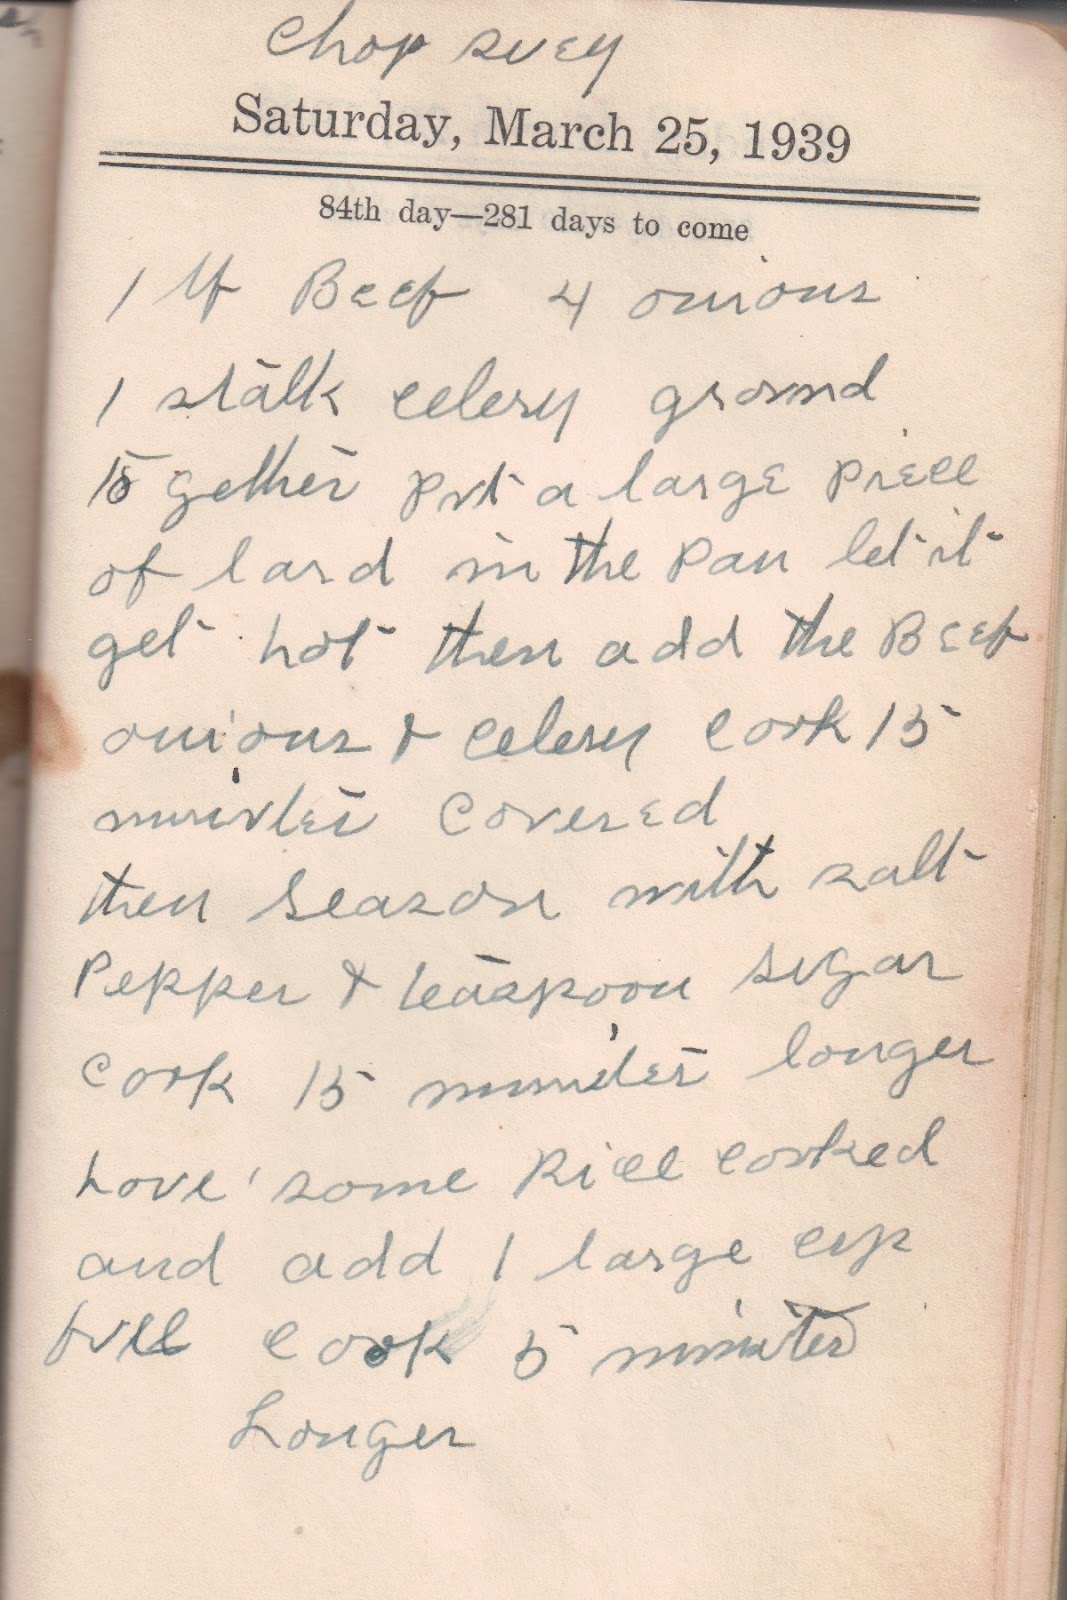 Chop suey
Saturday, March 25, 1939
84th day—281 days to come
1 lb Beef 4 onions
1 stalk celery ground
to gether put a large piece
of lard in the pan let it
get hot then add the Beef
onions & celery cook 15
minutes covered
then season with salt
Pepper & teaspoon sugar
cook 15 minutes longer
have some Rice cooked
and add 1 large cup
full cook 5 minutes
Longer